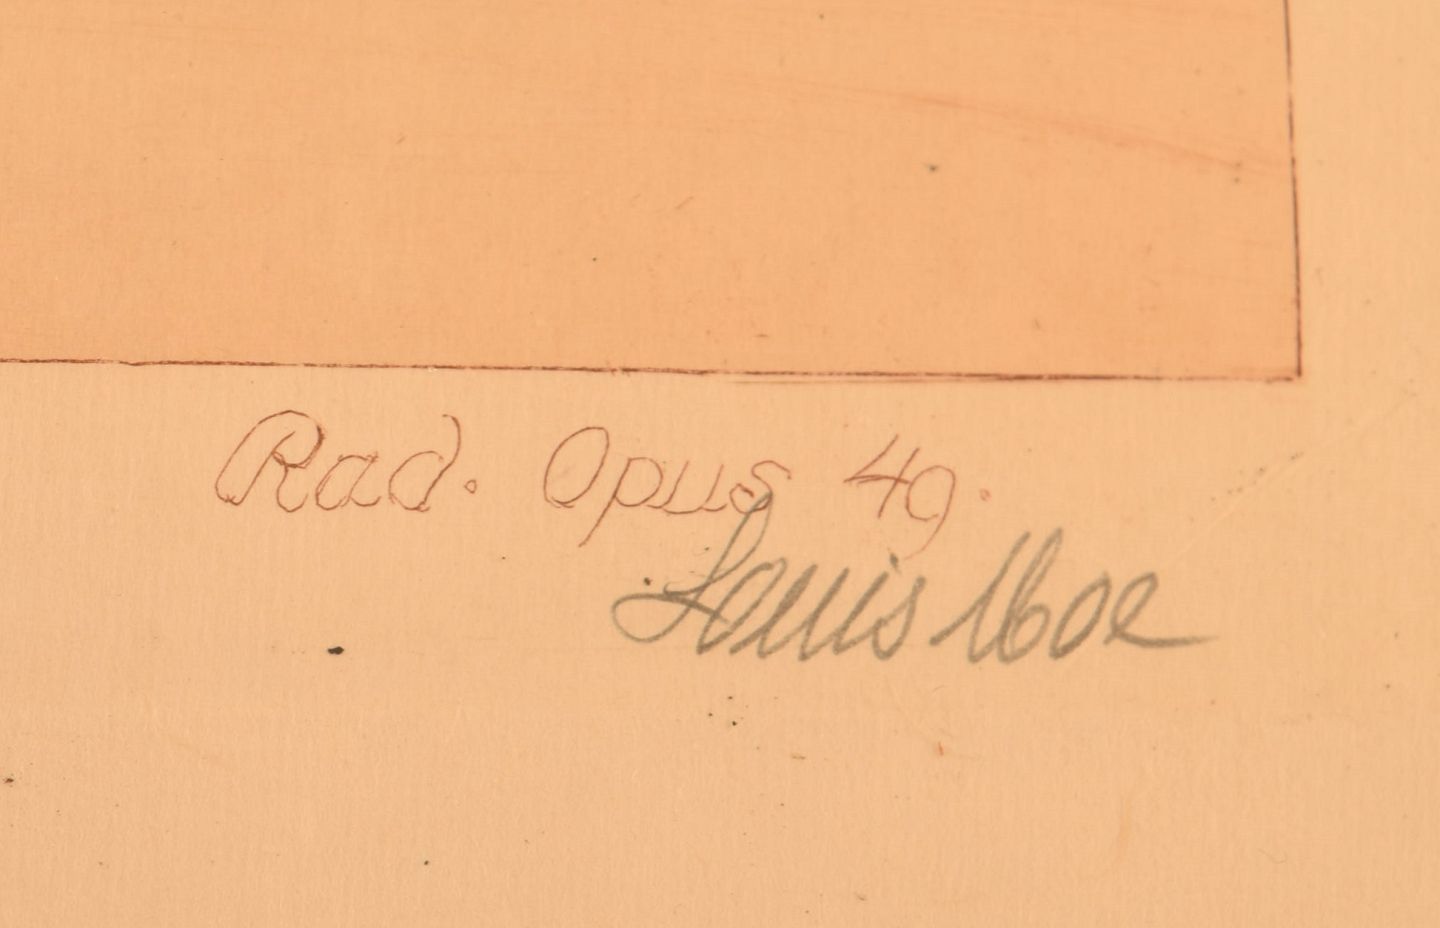 Rad. Opus 49.
Louis Moe